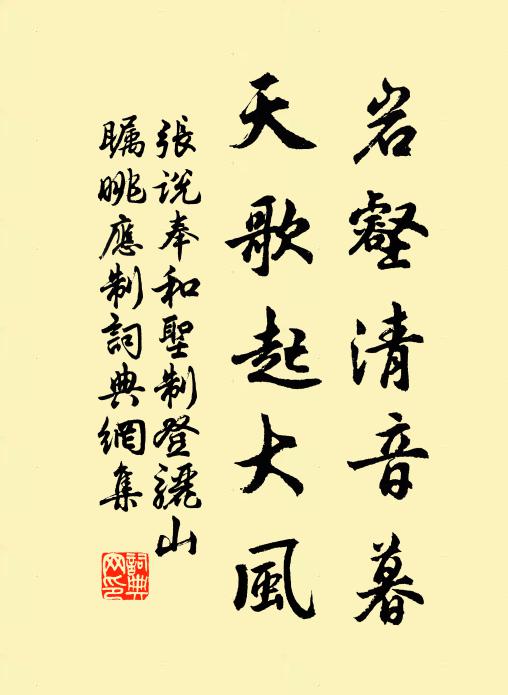 岩壑清音暮
天歌起大風
張説奉和聖制登驪山
矚眺應制詞典網集
詞典网印